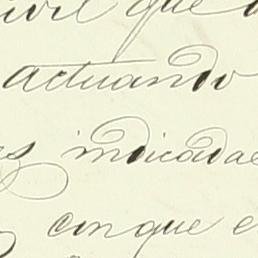 ivil que
actuando
es indicadas
con que e